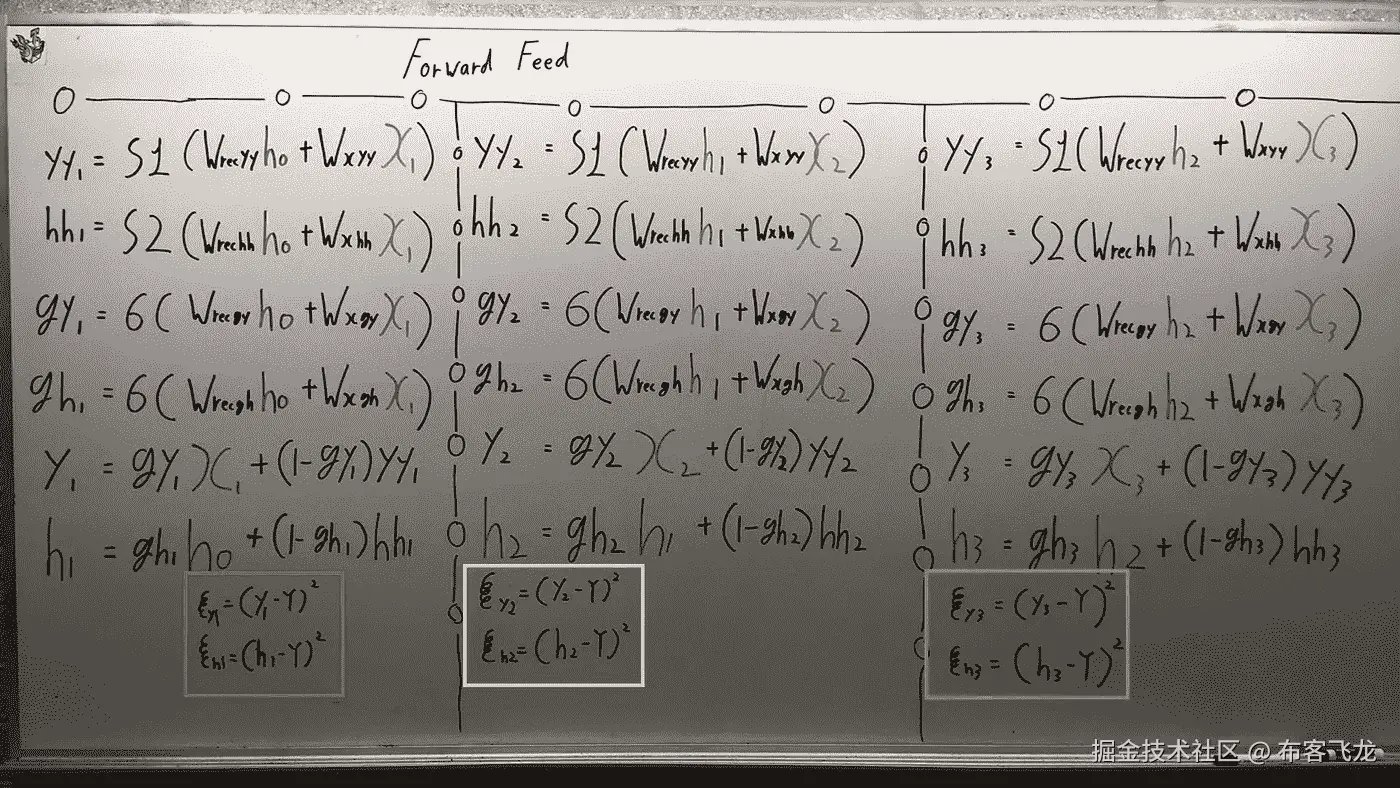 Forward Feed
yy₁ = S1 (Wrecyy h₀ + Wxyy X₁)
hh₁ = S2 (Wrechh h₀ + Wxhh X₁)
gy₁ = б( Wrecgy h₀ + Wxgy X₁)
gh₁ = б( Wrecgh h₀ + Wxgh X₁)
Y₁ = gy₁ X₁ + (1-gy₁) yy₁
h₁ = gh₁ h₀ + (1-gh₁) hh₁
ξy₁ = (Y₁-Y)²
ξh₁ = (h₁-Y)²
yy₂ = S1 (Wrecyy h₁ + Wxyy X₂)
hh₂ = S2 (Wrechh h₁ + Wxhh X₂)
gy₂ = б(Wrecgy h₁ + Wxgy X₂)
gh₂ = б(Wrecgh h₁ + Wxgh X₂)
Y₂ = gy₂ X₂ + (1-gy₂) yy₂
h₂ = gh₂ h₁ + (1-gh₂) hh₂
ξy₂ = (Y₂-Y)²
ξh₂ = (h₂-Y)²
yy₃ = S1(Wrecyy h₂ + Wxyy X₃)
hh₃ = S2(Wrechh h₂ + Wxhh X₃)
gy₃ = б(Wrecgy h₂ + Wxgy X₃)
gh₃ = б(Wrecgh h₂ + Wxgh X₃)
Y₃ = gy₃ X₃ + (1-gy₃) yy₃
h₃ = gh₃ h₂ + (1-gh₃) hh₃
ξy₃ = (Y₃-Y)²
ξh₃ = (h₃-Y)²
掘金技术社区 @ 布客飞龙